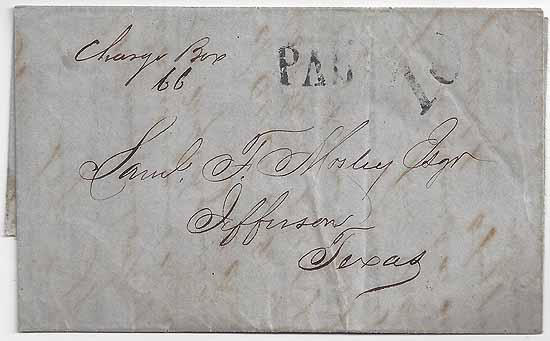 Charge Box
66
PAID 10
Saml. F. Mosley Esqr
Jefferson
Texas